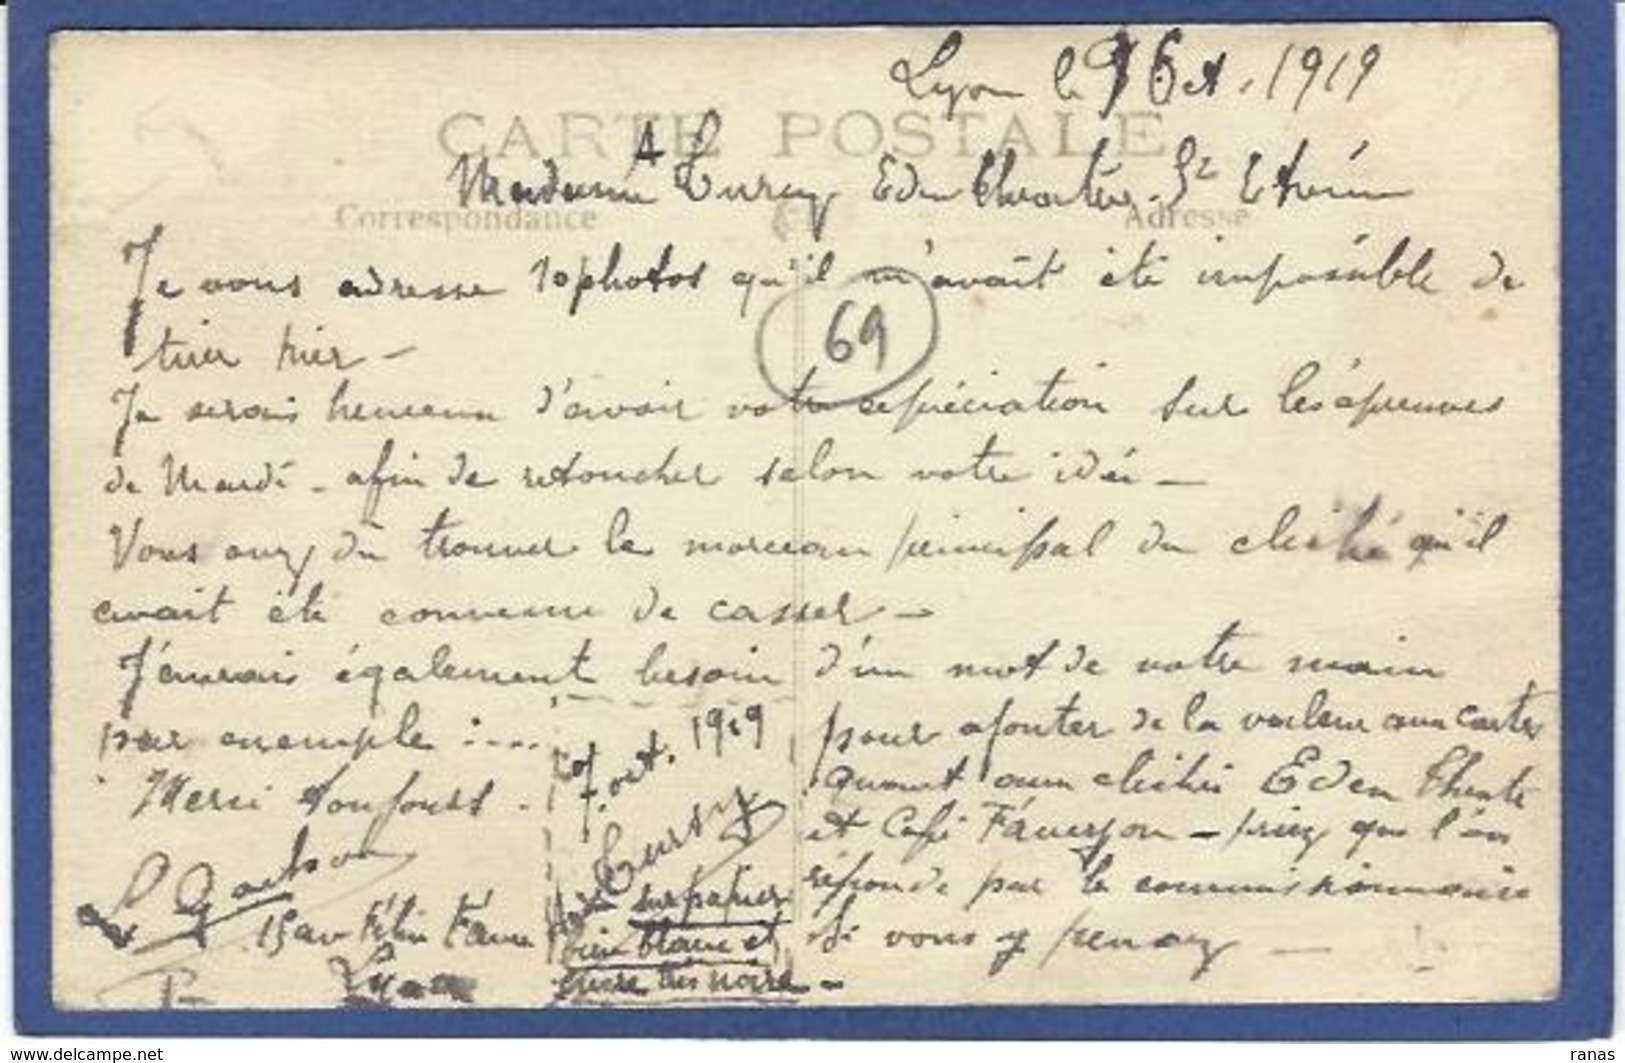 Lyon le 9 Oct. 1919
CARTE POSTALE
Madame A Tursy Eden Theatre St Etienne
Correspondance Adresse
Je vous adresse 10 photos qu'il m'avait été impossible de
tirer hier -
69
Je serais heureux d'avoir votre apréciation sur les épreuves
de Mardi - afin de retoucher selon votre idée -
Vous avez du trouver le morceau principal du cliché qu'il
avait été convenu de casser -
J'aurais également besoin d'un mot de votre main
par exemple : ....
Merci toujours -
15 av Félix Faure
Lyon
7 oct. 1919
Tursy
sur papier
bien blanc et
encre très noire -
pour ajouter de la valeur aux cartes
quant aux clichés Eden Theatre
et Café - priez que l'on
réponde par le commissionnaire
si vous y pensez -
www.delcampe.net
ranas